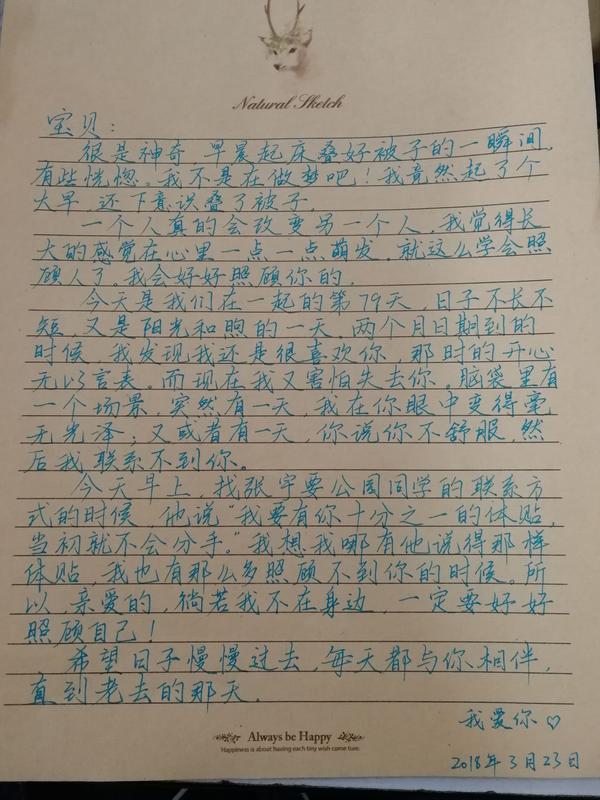 Natural Sketch
宝贝：
很是神奇，早晨起床叠好被子的一瞬间，
有些恍惚。我不是在做梦吧！我竟然起了个
大早，还下意识叠了被子。
一个人真的会改变另一个人，我觉得长
大的感觉在心里一点一点萌发，就这么学会照
顾人了，我会好好照顾你的。
今天是我们在一起的第79天，日子不长不
短，又是阳光和煦的一天，两个月日期到的
时候，我发现我还是很喜欢你，那时的开心
无以言表。而现在我又害怕失去你。脑袋里有
一个场景，突然有一天，我在你眼中变得毫
无光泽；又或者有一天，你说你不舒服，然
后我联系不到你。
今天早上，找张宇要公园同学的联系方
式的时候，他说“我要有你十分之一的体贴，
当初就不会分手。”我想我哪有他说得那样
体贴，我也有那么多照顾不到你的时候。所
以，亲爱的，倘若我不在身边，一定要好好
照顾自己！
希望日子慢慢过去，每天都与你相伴，
直到老去的那天。
我爱你♡
Always be Happy
Happiness is about having each tiny wish come ture.
2018年3月23日